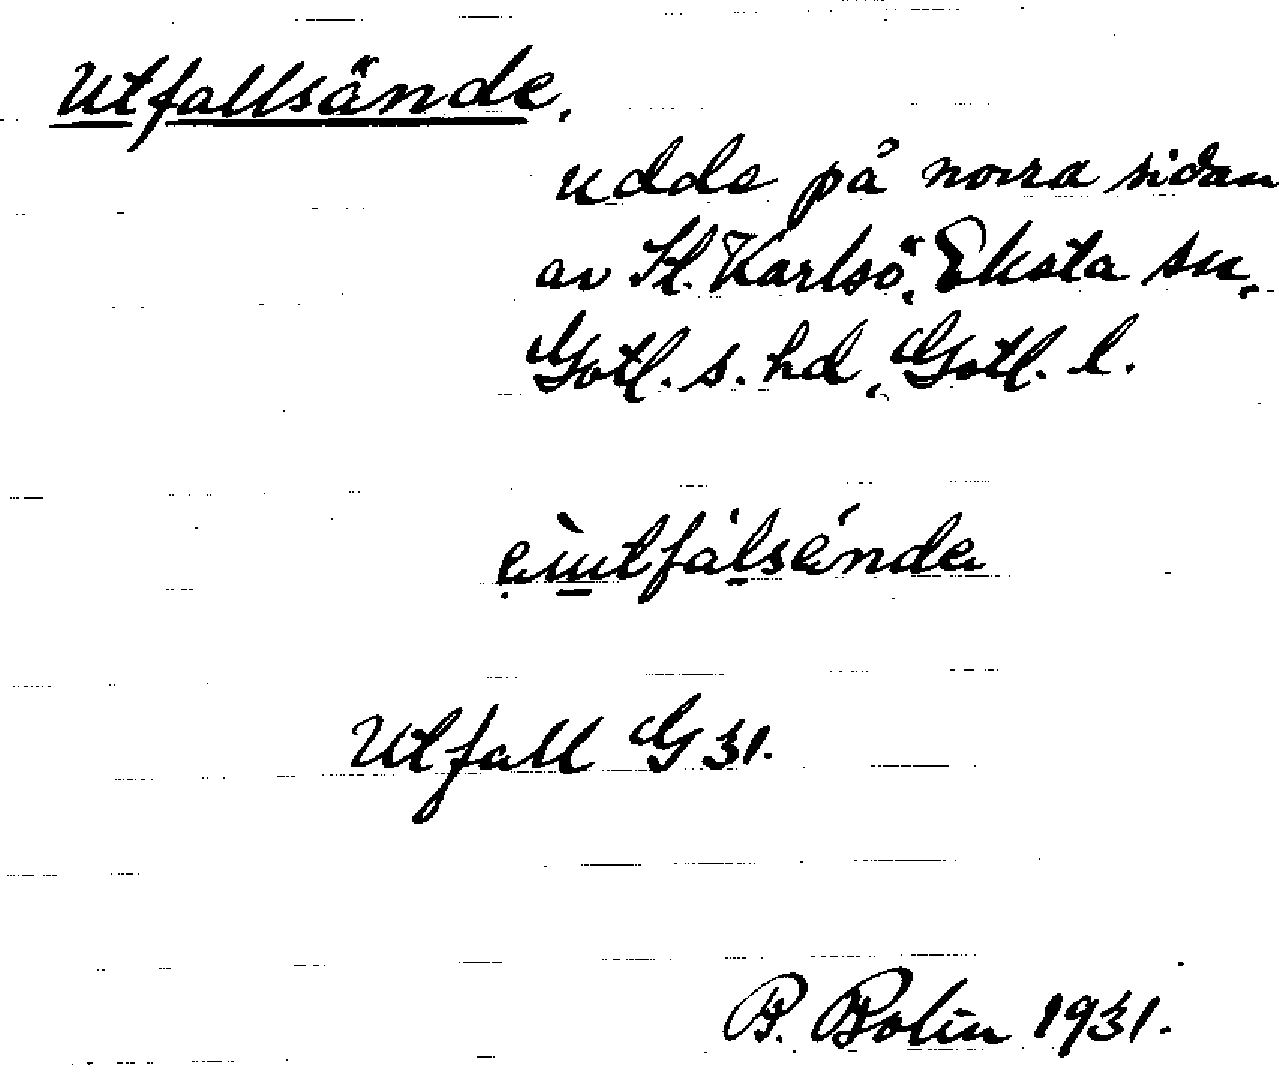 Utfallsände,
udde på norra sidan
av St. Karlsö, Eksta sn,
Gotl. s. hd, Gotl. l.
Utfall G 31.
B. Bolin 1931.